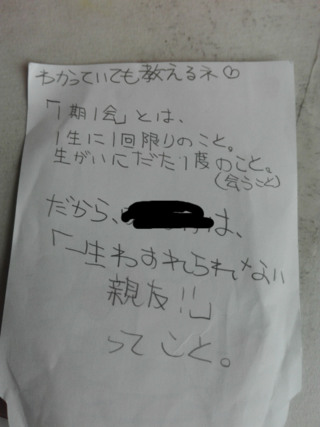 わかっていても教えるネ♡
「1期1会」とは、
1生に1回限りのこと。
生がいにだた1度のこと。
(会うこと)
だから、は、
「一生わすれられない
親友!!」
ってこと。